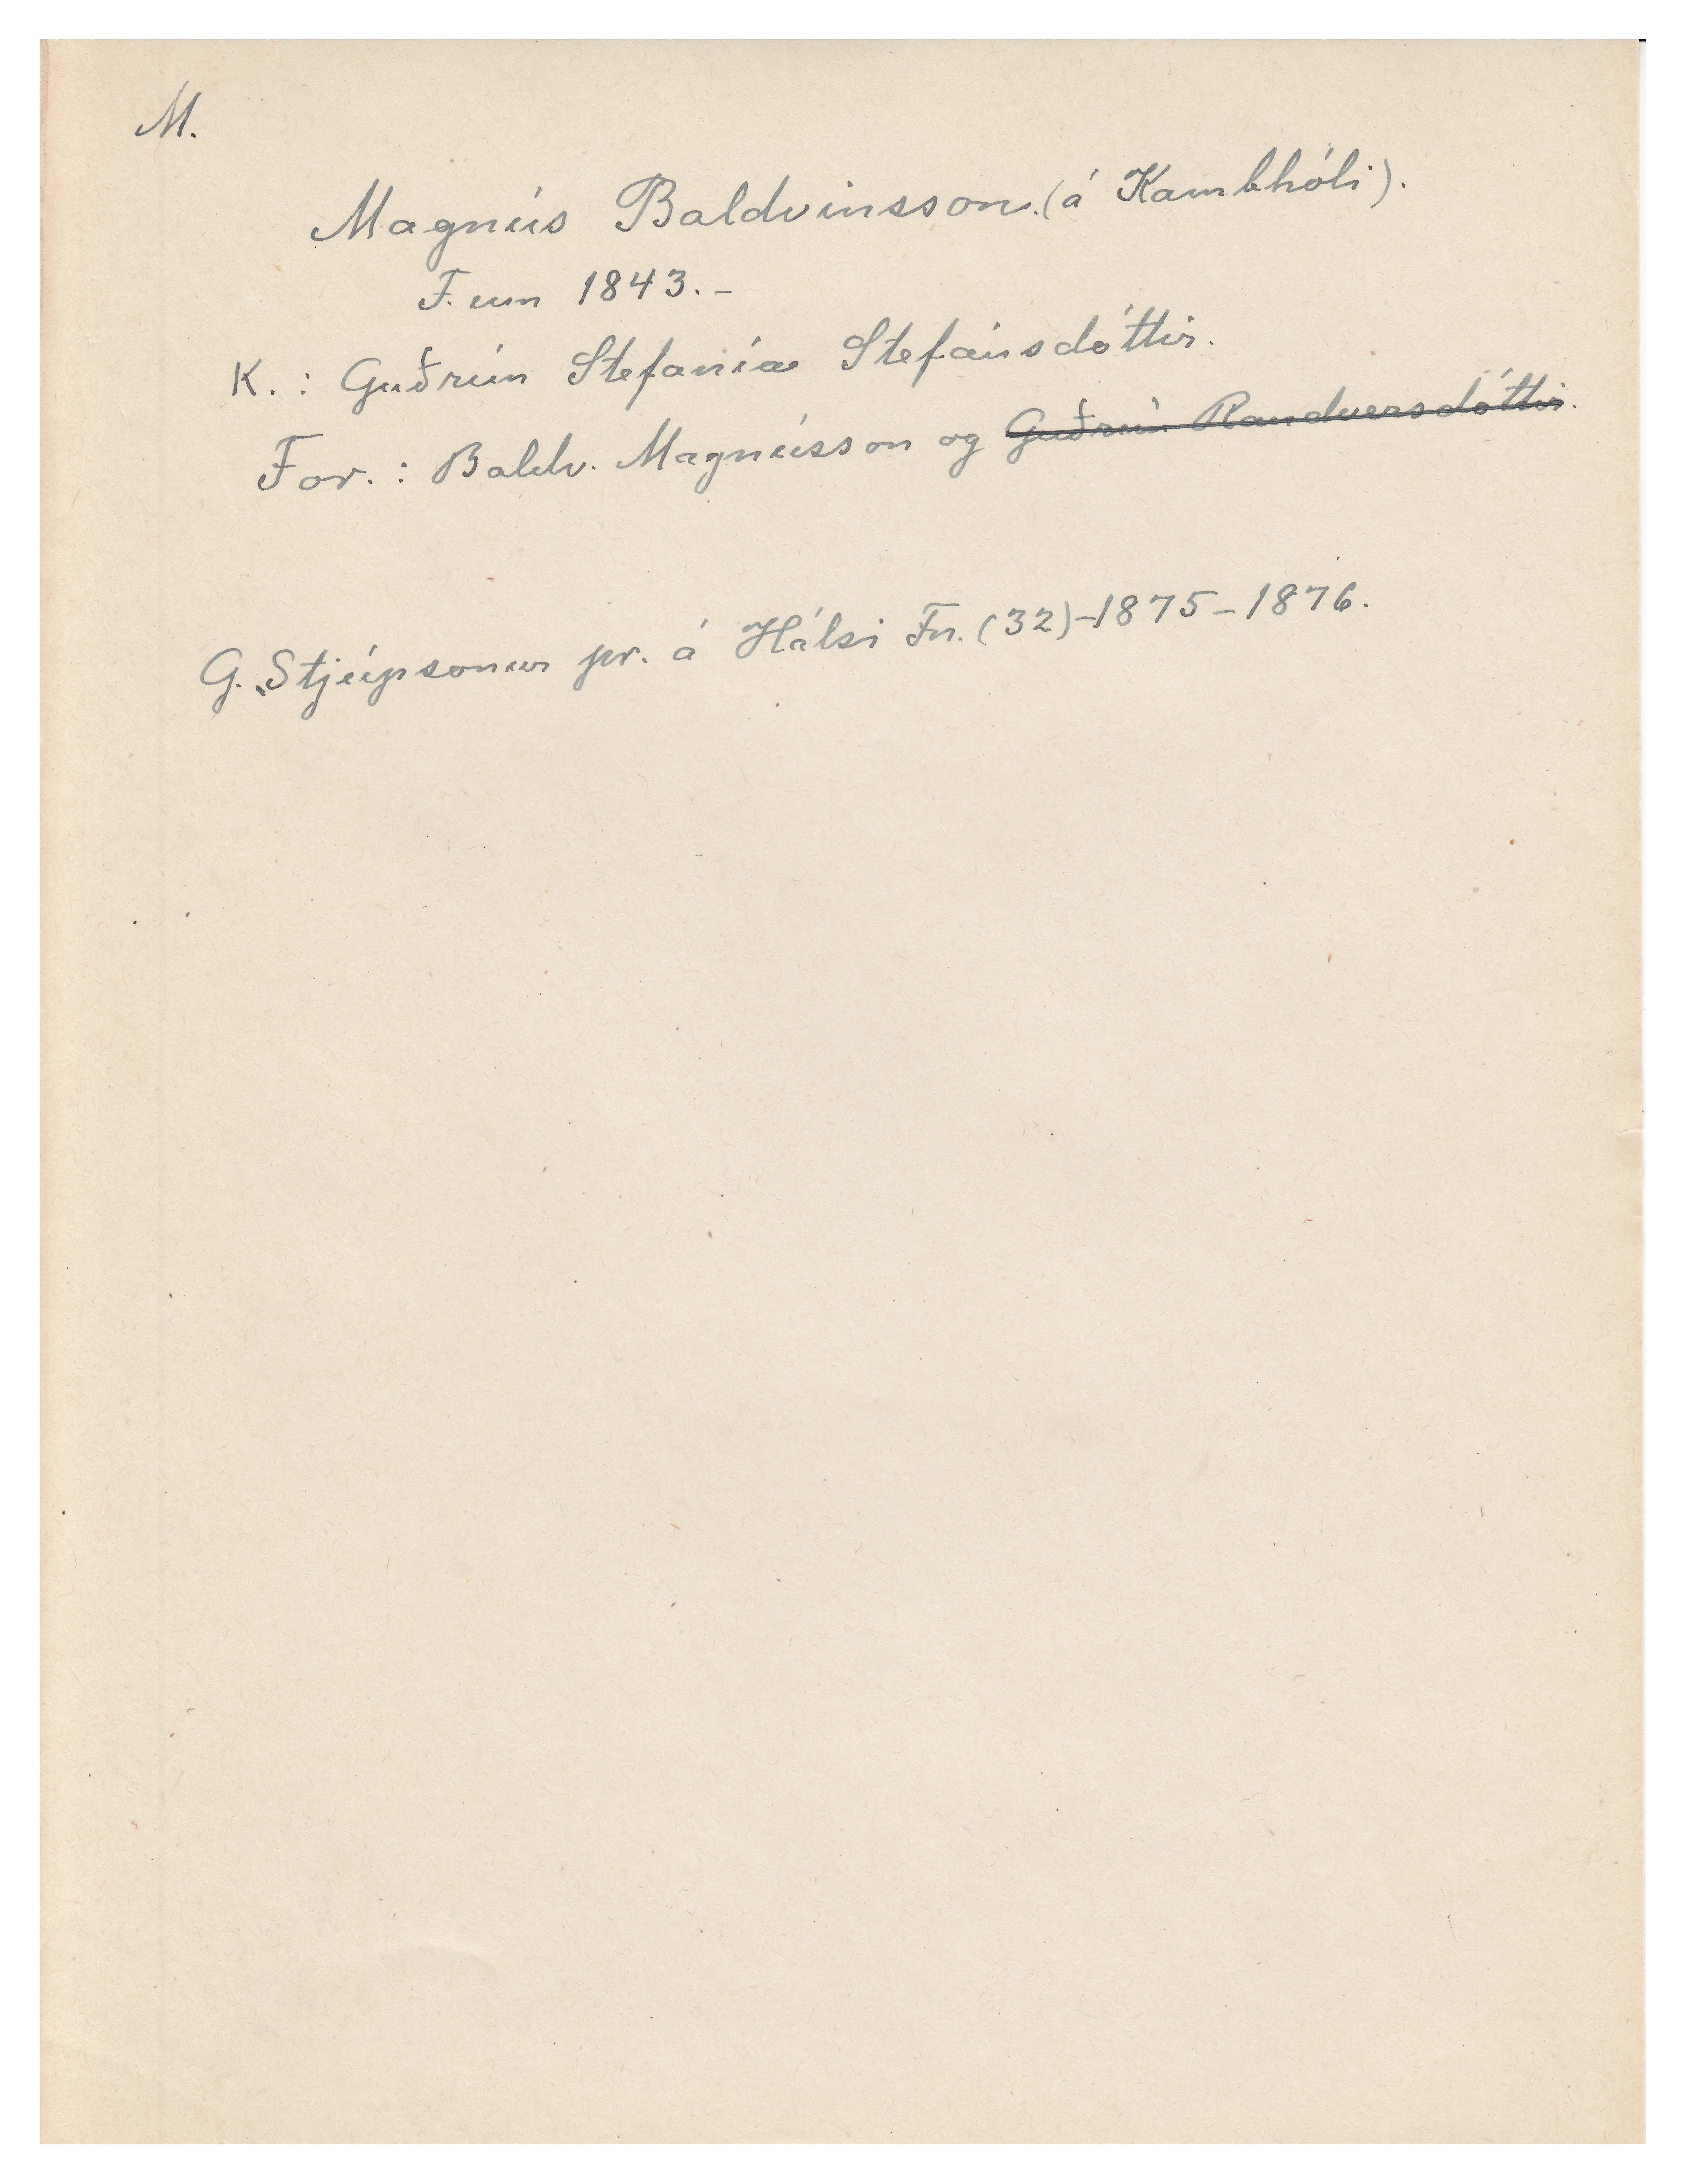 M.
Magnús Baldvinsson. (á Kambhóli).
F. um 1843. -
K. : Guðrún Stefanía Stefánsdóttir.
For. : Baldv. Magnússon og Guðrún Randversdóttir.
G. Stjúpsonur pr. á Hálsi Fn. (32) - 1875 - 1876.